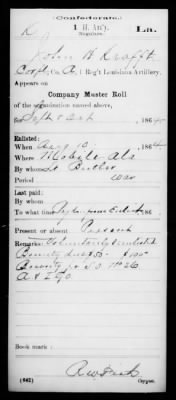 (Confederate.)
1 H. Art'y. La.
Regulars.
John H Krafft
Corpl, Co. A, 1 Reg't Louisiana Artillery.
Appears on
Company Muster Roll
of the organization named above,
for Sept & Oct, 1864.
Enlisted:
When Aug 10, 1864
Where Mobile Ala
By whom Lt Butler
Period War
Last paid:
By whom
To what time 186 .
Present or absent Present
Remarks: Voluntarily reenlisted
Bounty due $50 - $100
Bounty
A & IGO
Book mark:
(642) Copyist.